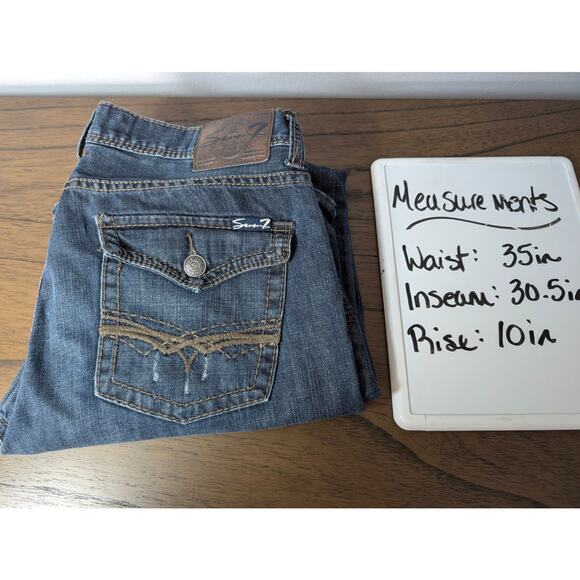 Seven7
Seven7
Measurements
Waist: 35in
Inseam: 30.5in
Rise: 10in